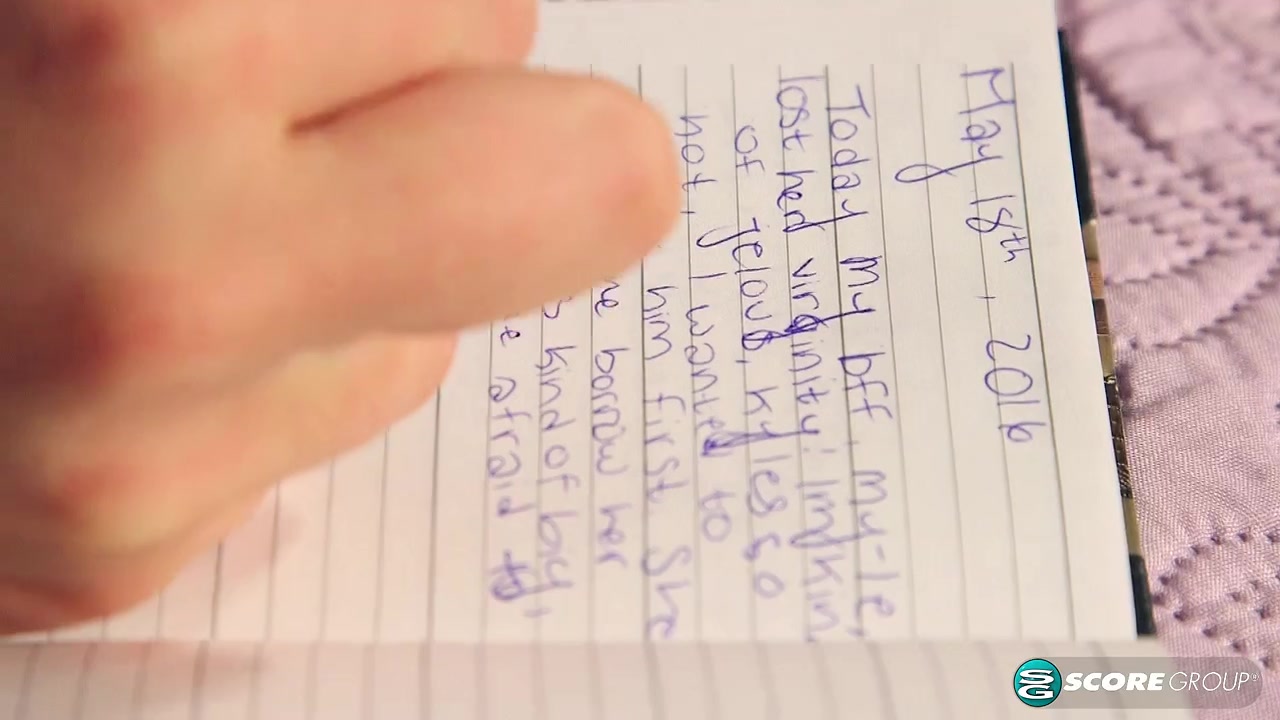 May 18th, 2016
Today my bff, my-le,
lost her virginity! Im kin
of jelous, kyles so
hot, I wanted to
him first She
borrow her
kind of big,
afraid to
SCORE GROUP